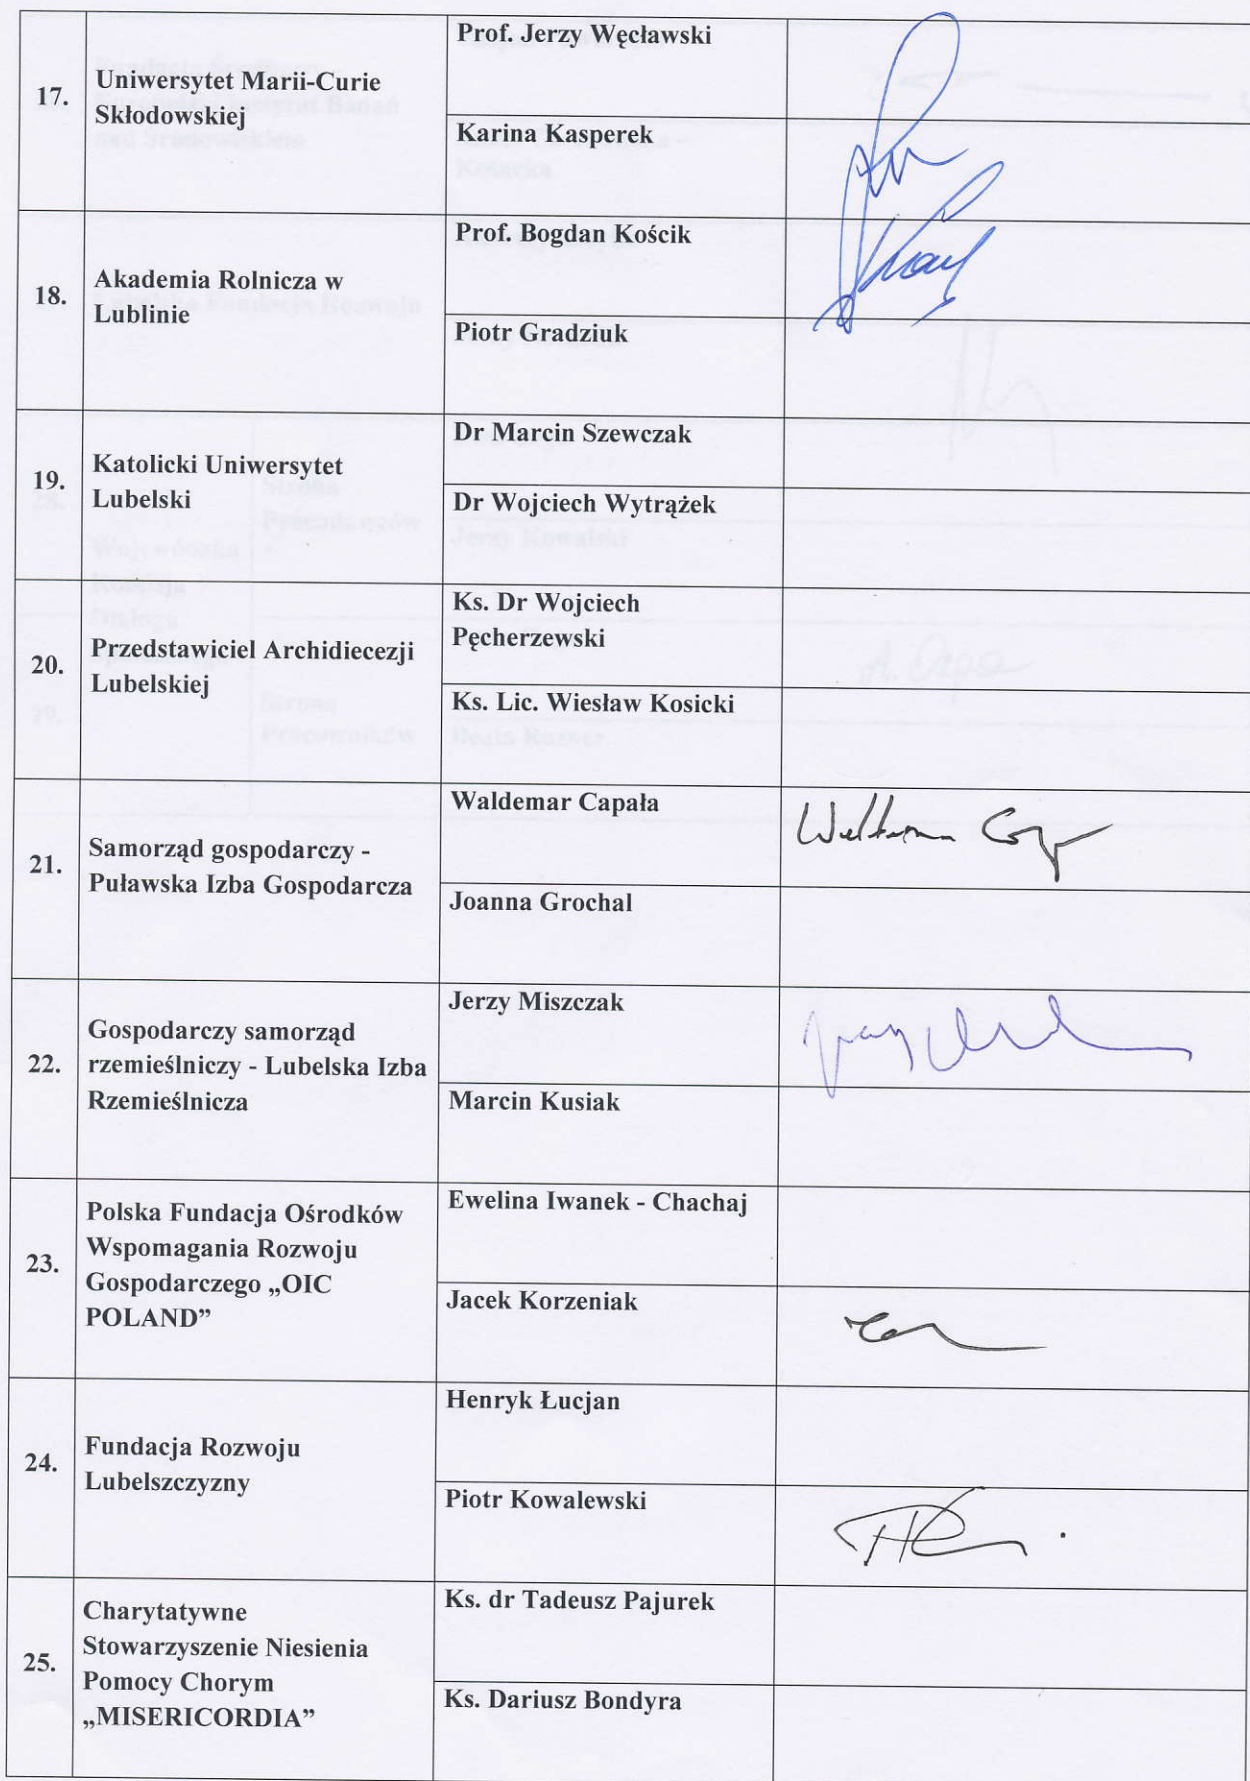 17.
Uniwersytet Marii-Curie
Skłodowskiej
Prof. Jerzy Węcławski
Karina Kasperek
18.
Akademia Rolnicza w
Lublinie
Prof. Bogdan Kościk
Piotr Gradziuk
19.
Katolicki Uniwersytet
Lubelski
Dr Marcin Szewczak
Dr Wojciech Wytrążek
20.
Przedstawiciel Archidiecezji
Lubelskiej
Ks. Dr Wojciech
Pęcherzewski
Ks. Lic. Wiesław Kosicki
21.
Samorząd gospodarczy -
Puławska Izba Gospodarcza
Waldemar Capała
Joanna Grochal
22.
Gospodarczy samorząd
rzemieślniczy - Lubelska Izba
Rzemieślnicza
Jerzy Miszczak
Marcin Kusiak
23.
Polska Fundacja Ośrodków
Wspomagania Rozwoju
Gospodarczego „OIC
POLAND”
Ewelina Iwanek - Chachaj
Jacek Korzeniak
24.
Fundacja Rozwoju
Lubelszczyzny
Henryk Łucjan
Piotr Kowalewski
25.
Charytatywne
Stowarzyszenie Niesienia
Pomocy Chorym
„MISERICORDIA”
Ks. dr Tadeusz Pajurek
Ks. Dariusz Bondyra